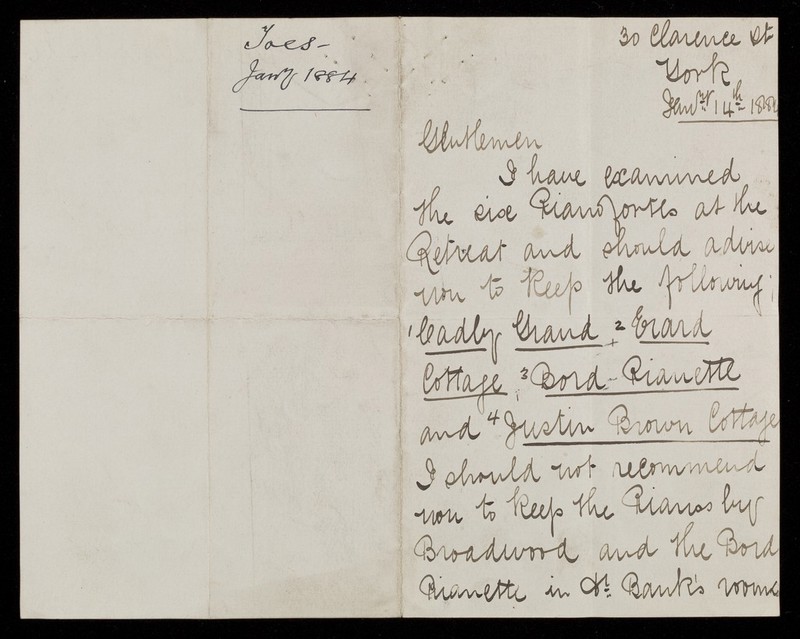 Toes -
Jany 1884
30 Clarence St
York
Jany 14th 188
Gentlemen
I have examined
the six Pianofortes at the
Retreat and should advise
you to keep the following;
1 Cadby Grand, 2 Erard
Cottage, 3 Bord-Pianette
and 4 Justin Brown Cottage
I should not recommend
you to keep the Pianos by
Broadwood and the Bord
Pianette in Dr. Bank's rooms